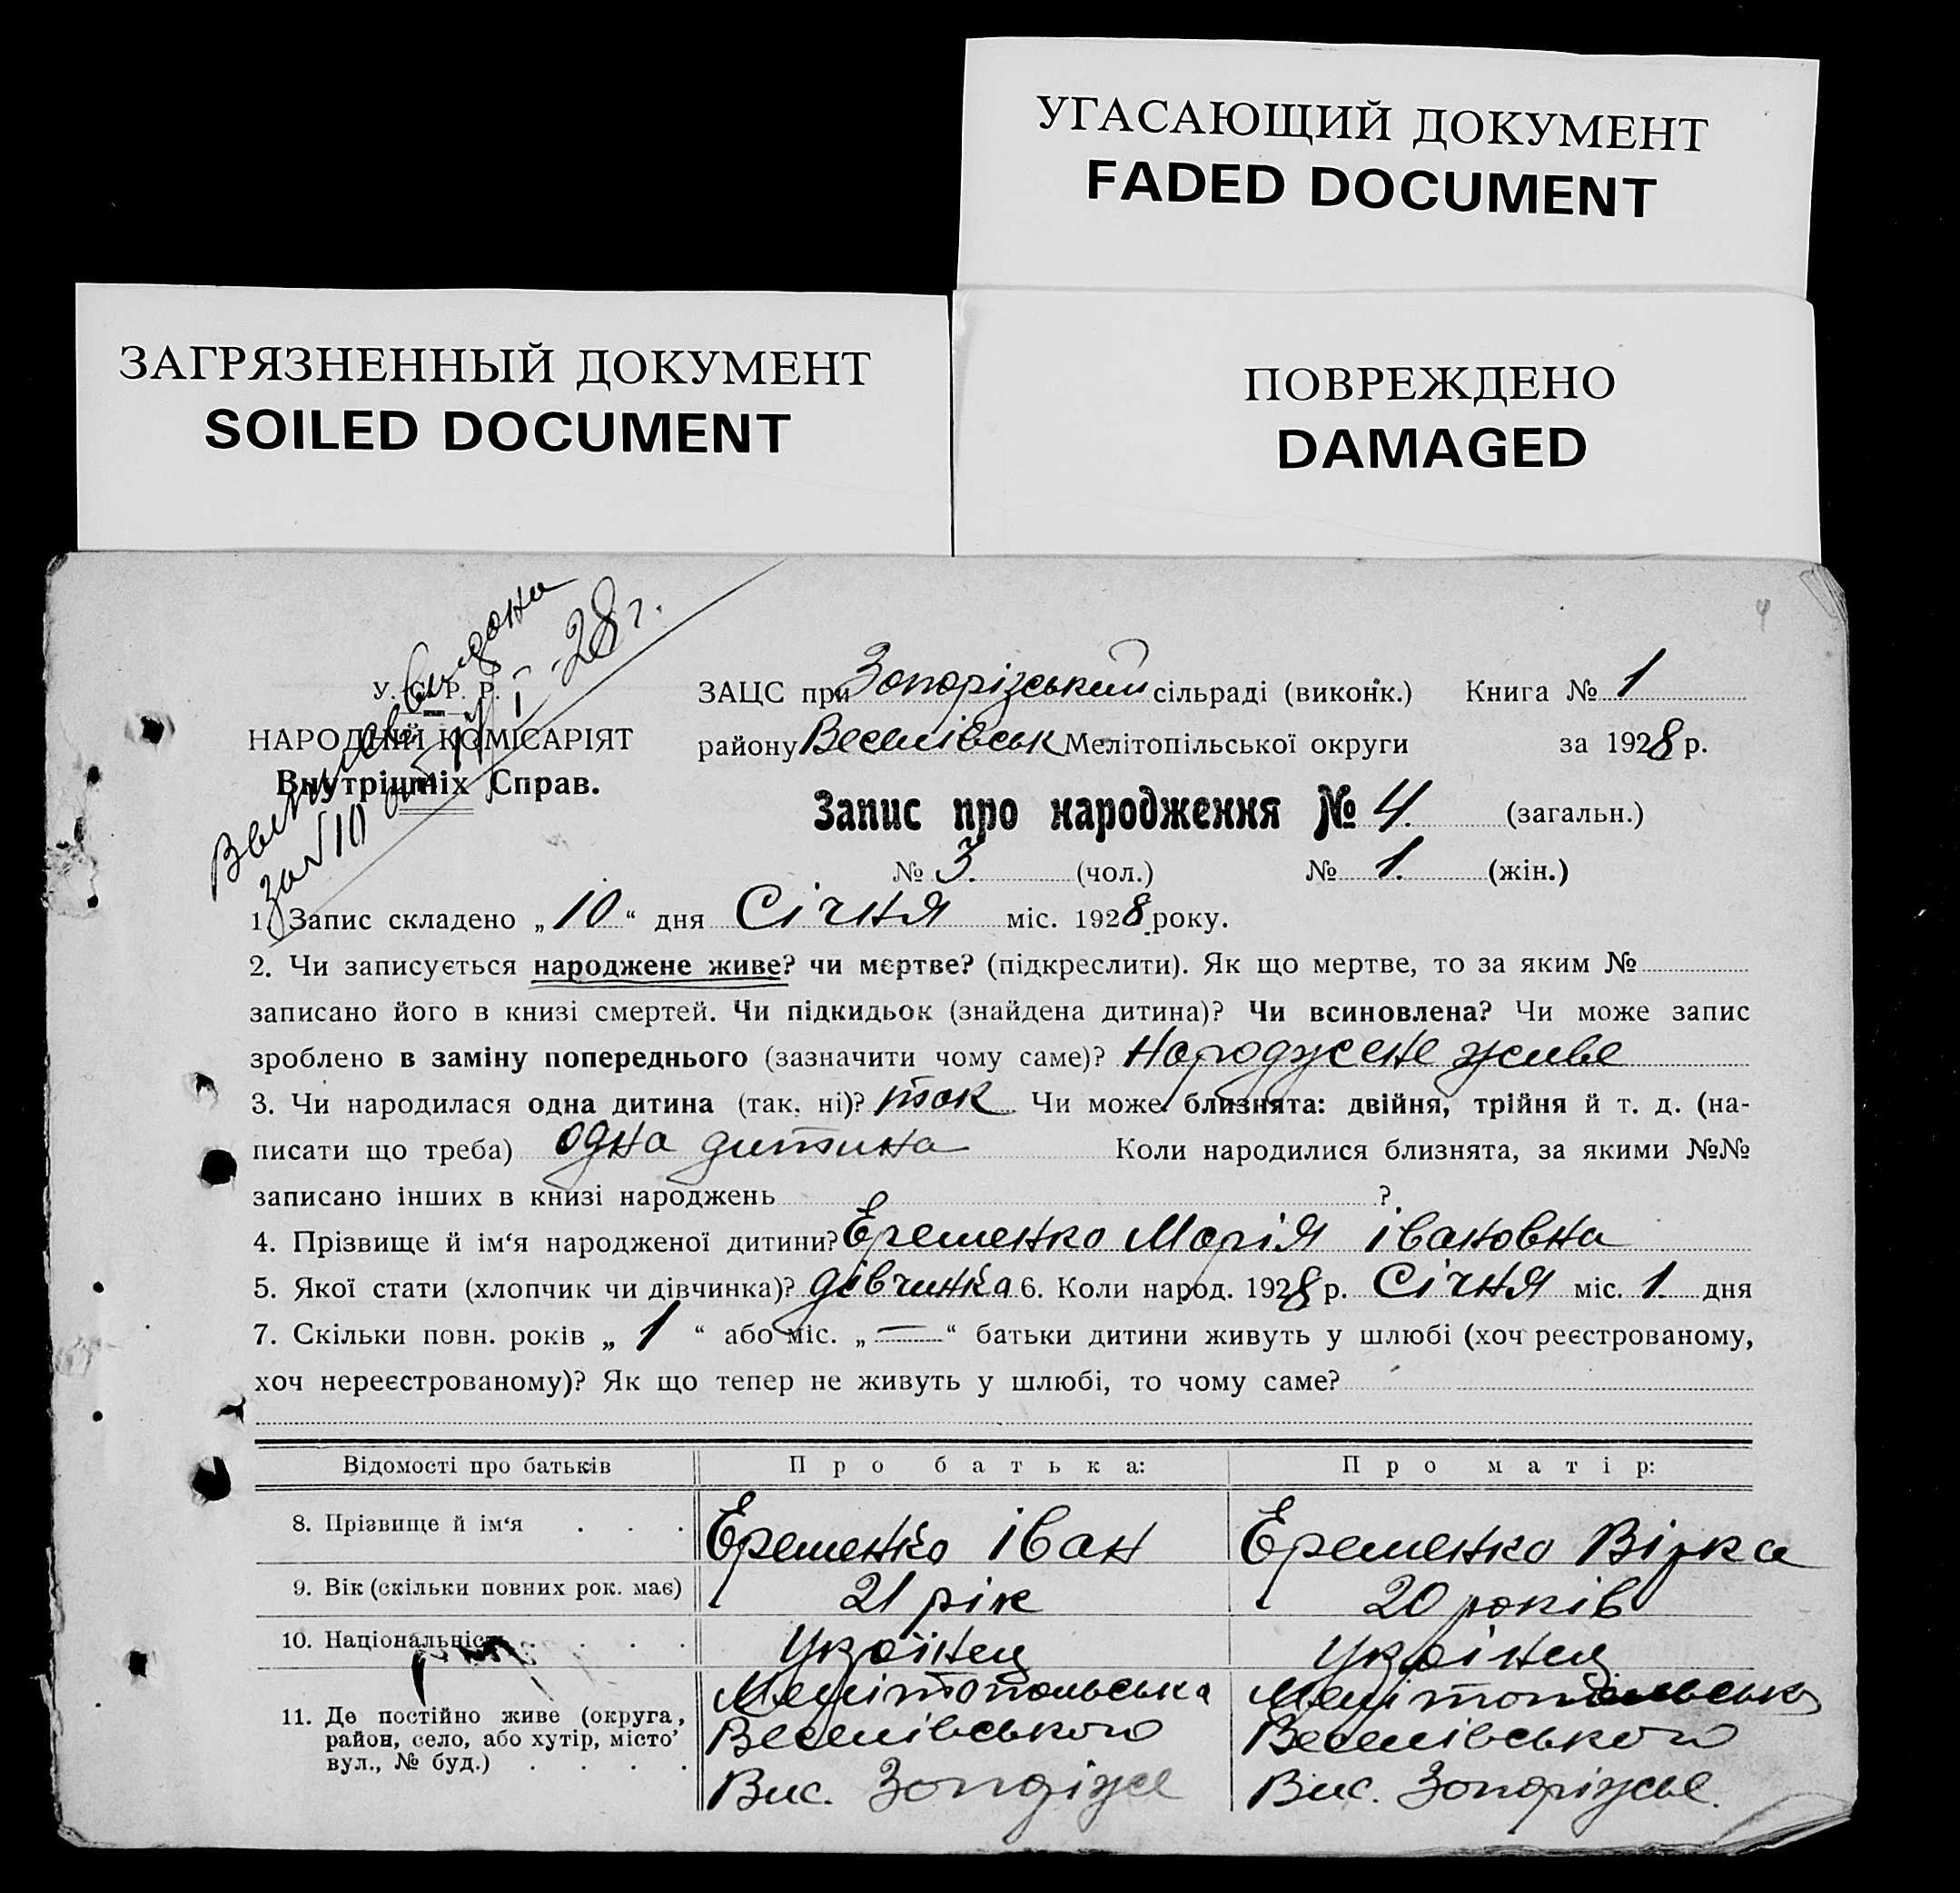 УГАСАЮЩИЙ ДОКУМЕНТ
FADED DOCUMENT
ЗАГРЯЗНЕННЫЙ ДОКУМЕНТ
SOILED DOCUMENT
ПОВРЕЖДЕНО
DAMAGED
видана
за №10 от 11/I-28 г.
У. С. Р. Р.
НАРОДНИЙ КОМІСАРІЯТ
Внутрішніх Справ.
ЗАЦС при Запорізський сільраді (виконк.) Книга № 1
району Веселівськ Мелітопільської округи за 1928 р.
Запис про народження № 4. (загальн.)
№ 3. (чол.) № 1. (жін.)
1. Запис складено „10“ дня Січня міс. 1928 року.
2. Чи записується народжене живе? чи мертве? (підкреслити). Як що мертве, то за яким №
записано його в книзі смертей. Чи підкидьок (знайдена дитина)? Чи всиновлена? Чи може запис
зроблено в заміну попереднього (зазначити чому саме)? Народжене живе
3. Чи народилася одна дитина (так, ні)? так Чи може близнята: двійня, трійня й т. д. (на-
писати що треба) одна дитина Коли народилися близнята, за якими №№
записано інших в книзі народжень ?
4. Прізвище й ім‘я народженої дитини? Еременко Марія івановна
5. Якої стати (хлопчик чи дівчинка)? дівчинка 6. Коли народ. 1928 р. Січня міс. 1. дня
7. Скільки повн. років „ 1 “ або міс. „ — “ батьки дитини живуть у шлюбі (хоч реєстрованому,
хоч нереєстрованому)? Як що тепер не живуть у шлюбі, то чому саме?
Відомості про батьків Про батька: Про матір:
8. Прізвище й ім‘я . . . Еременко іван Еременко Вірка
9. Вік (скільки повних рок. має) 21 рік 20 років
10. Національність . . . . Українец Українец
11. Де постійно живе (округа, Мелітопольська Мелітопольська
район, село, або хутір, місто’ Веселівського Веселівського
вул., № буд.) . . . . Вис. Запоріжже Вис. Запоріжське.